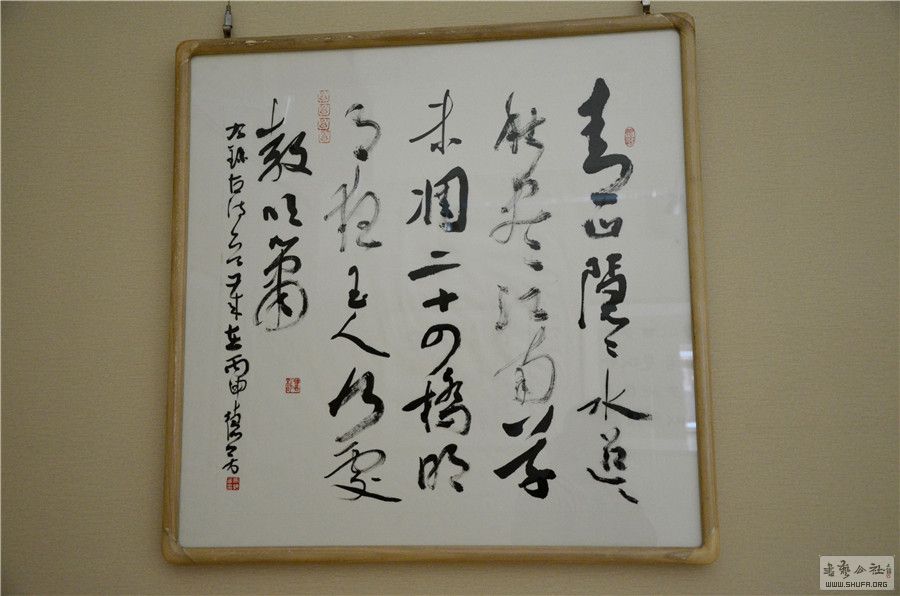 青山隱〻水迢〻
秋盡江南草
未凋二十四橋明
月夜玉人何處
教吹簫
右錄古詩一首歲在丙申
書藝公社
WWW.SHUFA.ORG